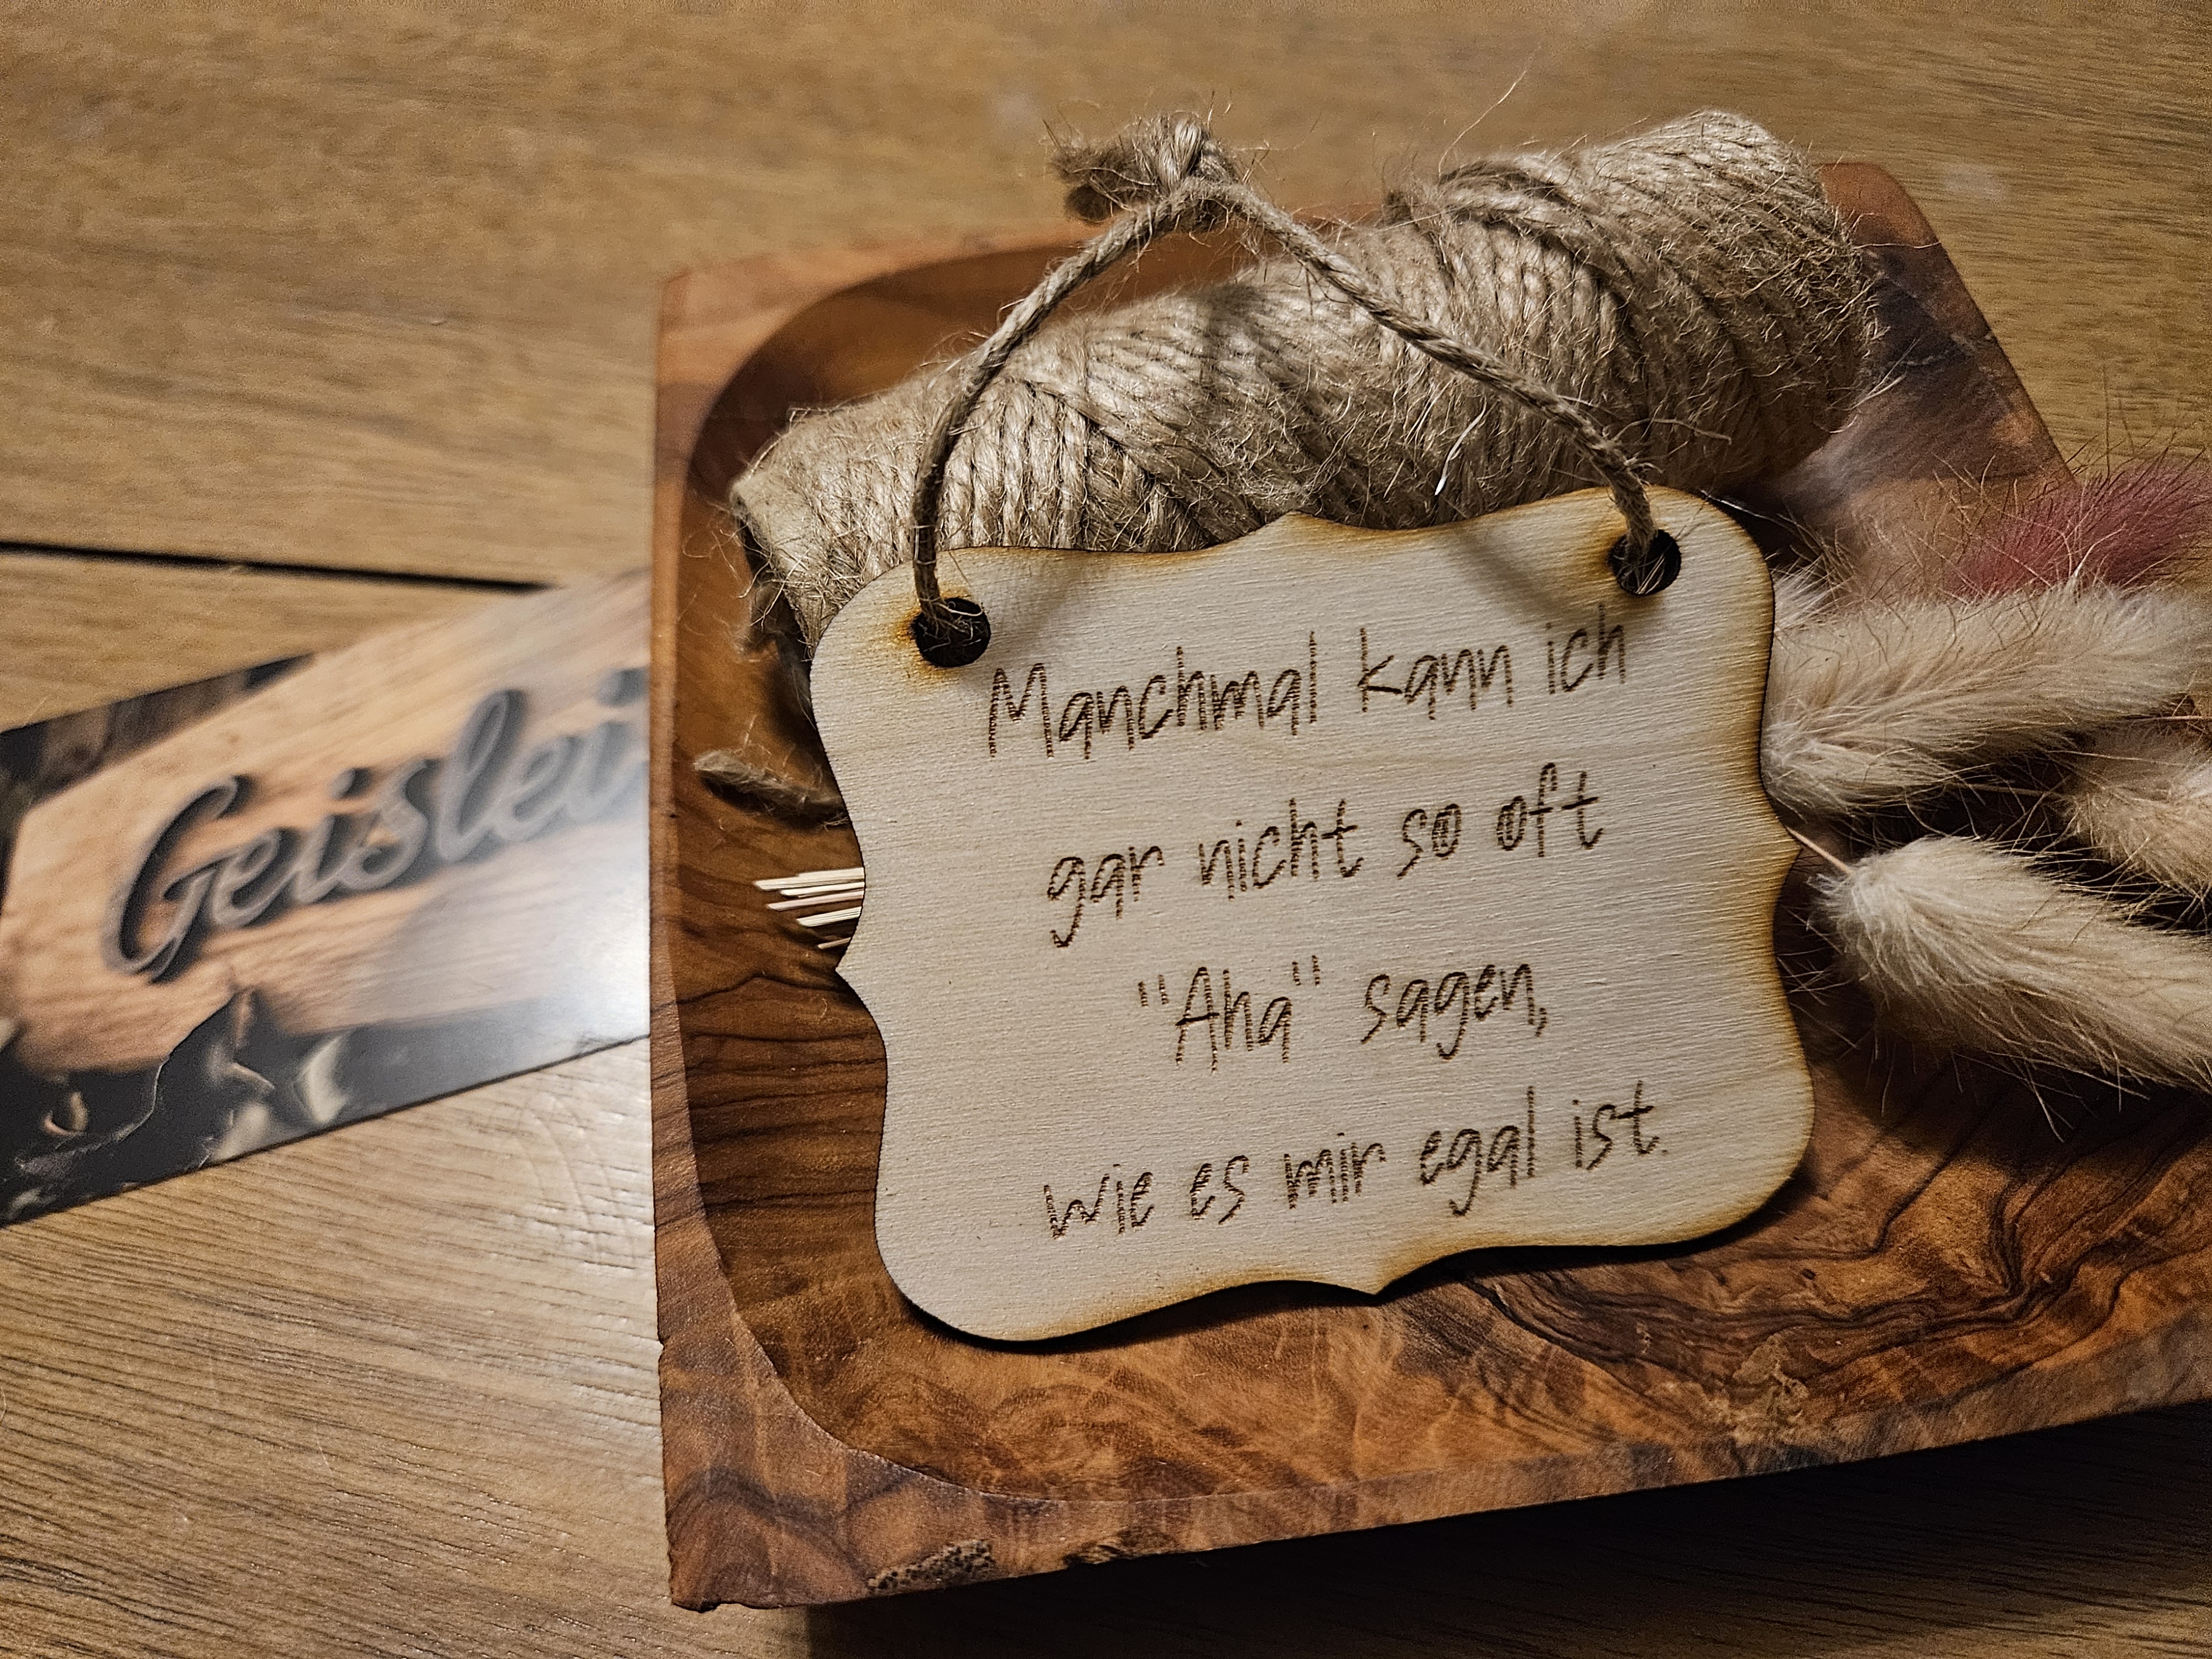 Manchmal kann ich
gar nicht so oft
"Aha" sagen,
wie es mir egal ist.